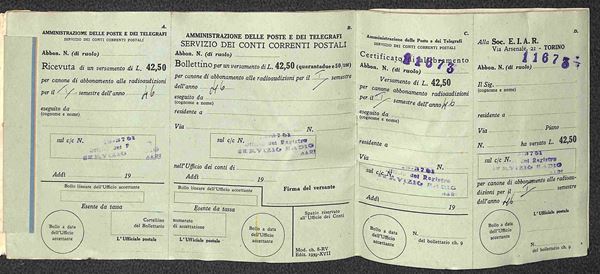 A.
AMMINISTRAZIONE DELLE POSTE E DEI TELEGRAFI
SERVIZIO DEI CONTI CORRENTI POSTALI
Abbon. N. (di ruolo)
Ricevuta di un versamento di L. 42,50
per canone di abbonamento alle radioaudizioni
per il I semestre dell'anno 46
eseguito da
(cognome e nome)
sul c/c N.
SERVIZIO RADIO
Addì 19
Bollo lineare dell'Ufficio accettante
Esente da tassa
Bollo a data
dell'Ufficio
accettante
Cartellino
del Bollettario
L'Ufficiale postale
B.
AMMINISTRAZIONE DELLE POSTE E DEI TELEGRAFI
SERVIZIO DEI CONTI CORRENTI POSTALI
Abbon. N. (di ruolo)
Bollettino per un versamento di L. 42,50 (quarantadue e 50/100)
per canone di abbonamento alle radioaudizioni per il I semestre
dell'anno 46
eseguito da
(cognome e nome)
residente a
Via N.
sul c/c N.
Ufficio del Registro
SERVIZIO RADIO
nell'Ufficio dei conti di
Addì 19
Bollo lineare dell'Ufficio accettante
Firma del versante
Esente da tassa
Spazio riservato
all'Ufficio dei Conti
numerato
di accettazione
L'Ufficiale postale
Bollo a data
dell'Ufficio
accettante
Mod. ch. 8-RV
Ediz. 1939-XVII
C.
Amministrazione delle Poste e dei Telegrafi
SERVIZIO DEI CONTI CORRENTI POSTALI
11673
Certificato di allibramento
Abbon. N. (di ruolo)
Versamento di L. 42,50
per canone abbonamento radioaudizioni
per il I semestre dell'anno 46
eseguito da
(cognome e nome)
residente a
Via N.
sul c/c N.
Ufficio del Registro
SERVIZIO RADIO
Addì 19
Bollo a data
dell'Ufficio
accettante
N.
del bollettario ch. 9
D.
Alla Soc. E. I. A. R.
Via Arsenale, 21 - TORINO
11673
Abbon. N. (di ruolo)
Il Sig.
(cognome e nome)
Via Piano
N. ha versato L. 42,50
sul c/c N.
Ufficio del Registro
SERVIZIO RADIO
per canone di abbonamento alle radioau-
dizioni per il I semestre dell'anno
46
Addì 19
Bollo a data
dell'Ufficio
accettante
N.
del bollettario ch. 9
L'Ufficiale postale